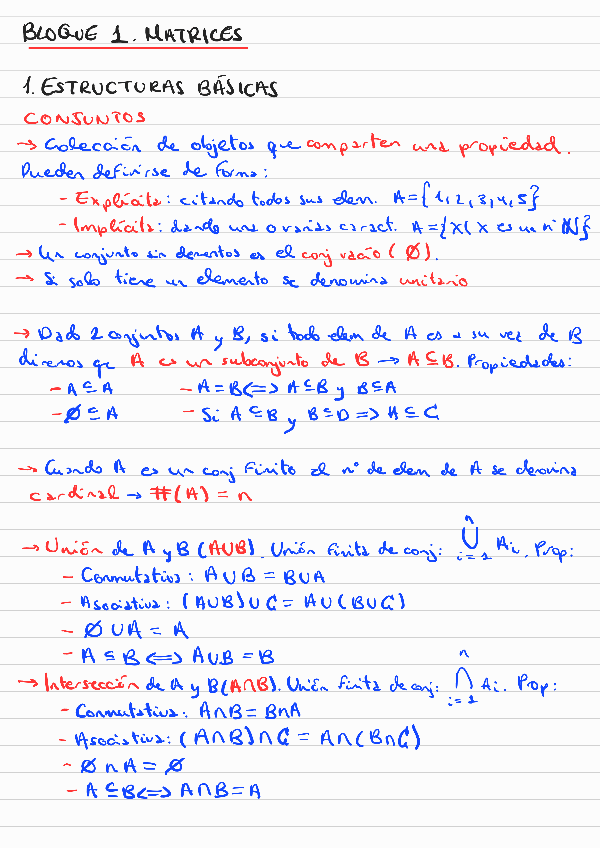 BLOQUE 1. MATRICES
1. ESTRUCTURAS BÁSICAS
CONJUNTOS
→ Colección de objetos que comparten una propiedad.
Pueden definirse de forma:
- Explícita: citando todos sus elem. A={1,2,3,4,5}
- Implícita: dando una o varias caract. A={X(X es un nº N}
→ Un conjunto sin elementos es el conj vacío (∅).
→ Si solo tiene un elemento se denomina unitario
→ Dado 2 conjuntos A y B, si todo elem de A es a su vez de B
diremos que A es un subconjunto de B → A⊆B. Propiedades:
- A⊆A - A=B⟺A⊆B y B⊆A
- ∅⊆A - Si A⊆B y B⊆D ⟹ A⊆C
→ Cuando A es un conj finito el nº de elem de A se denomina
cardinal → #(A) = n
→ Unión de A y B (A∪B). Unión finita de conj: ⋃ⁿᵢ₌₁ Aᵢ. Prop:
- Conmutativa: A∪B = B∪A
- Asociativa: (A∪B)∪C = A∪(B∪C)
- ∅∪A = A
- A⊆B⟺A∪B=B
→ Intersección de A y B(A∩B). Unión finita de conj: ⋂ⁿᵢ₌₁ Aᵢ. Prop:
- Conmutativa: A∩B = B∩A
- Asociativa: (A∩B)∩C = A∩(B∩C)
- ∅∩A = ∅
- A⊆B⟺A∩B=A